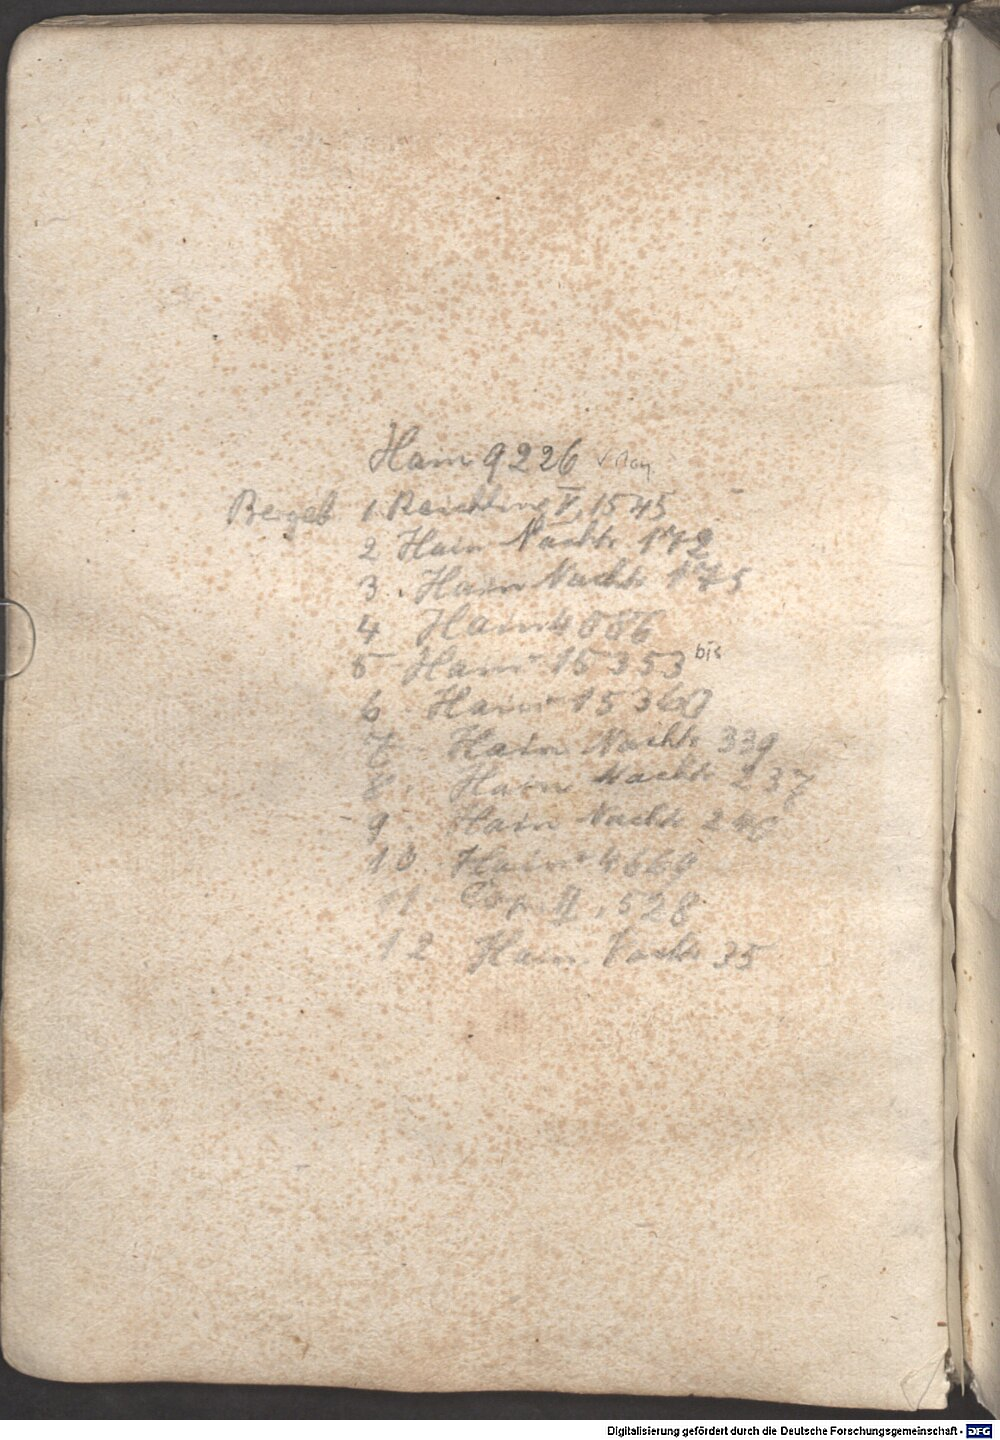 Hain 9226
Beigeb 1. Reichling V, 1545
2 Hain Nachtr 172
3. Hain Nachtr 175
4 Hain 4086
5 Hain 15353 bis
6 Hain 15360
7. Hain Nachtr 339
8. Hain Nachtr 237
9. Hain Nachtr 246
10. Hain 4669
11 Cop II, 528
12 Hain. Nachtr 35
Digitalisierung gefördert durch die Deutsche Forschungsgemeinschaft - DFG